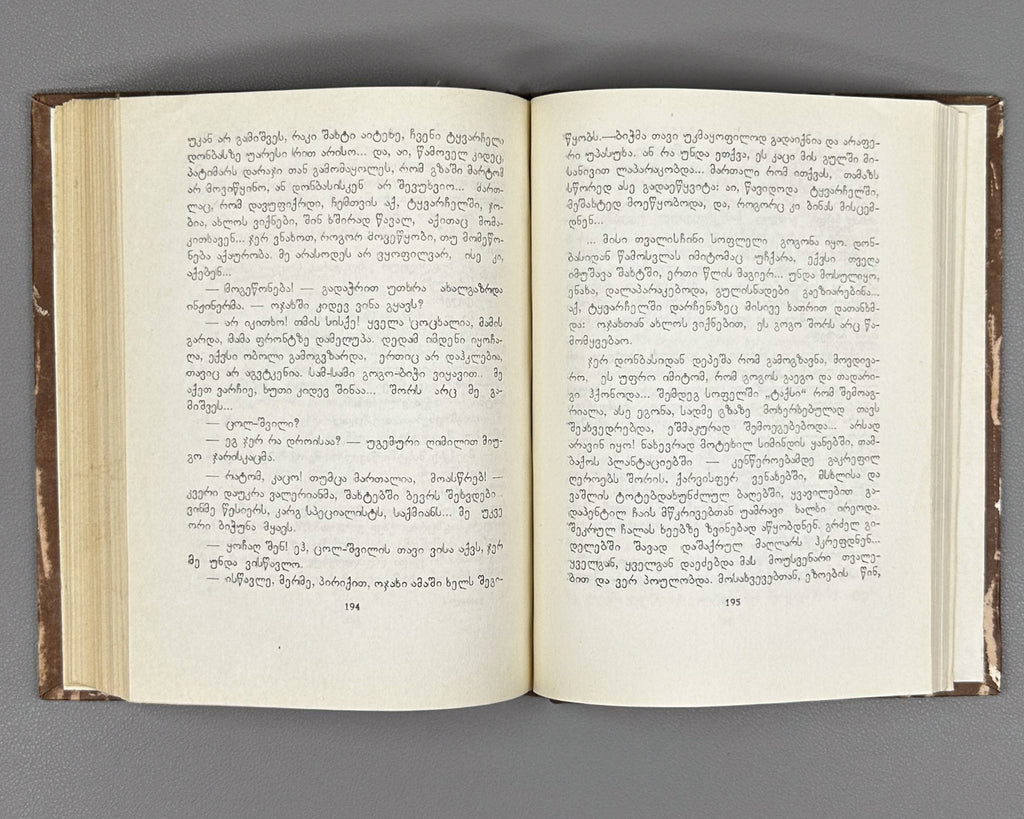 უკან არ გამიშვეს, რაკი შახტი აიტეხე, ჩვენი ტყვარჩელი
დონბასზე უარესი რით არისო... და, აი, წამოველ კიდეც,
პატიმარს დარაჯი თან გამომაყოლეს, რომ გზაში მარტომ
არ მოვიწყინო, ან დონბასისკენ არ შევუხვიო... მართ-
ლაც, რომ დავუფიქრდი, ჩემთვის აქ, ტყვარჩელში, ჯო-
ბია, ახლოს ვიქნები, შინ ხშირად წავალ, აქითაც მომა-
კითხავენ... ჯერ ვნახოთ, როგორ მოვეწყობი, თუ მომეწო-
ნება აქაურობა. მე არასოდეს არ ვყოფილვარ, ისე კი,
აქებენ...
— მოგეწონება! — გადაჭრით უთხრა ახალგაზრდა
ინჟინერმა. — ოჯახში კიდევ ვინა გყავს?
— არ იკითხო! თმის სისქე! ყველა ცოცხალია, მამის
გარდა, მამა ფრონტზე დამელუპა. დედამ იმდენი იყოჩა-
ღა, ექვსი ობოლი გამოგვზარდა, ერთიც არ დაჰკლებია,
თავიც არ აგვტკენია. სამ-სამი გოგო-ბიჭი ვიყავით.. მე
აქეთ ვარჩიე, ხუთი კიდევ შინაა... შორს არც მე გა-
მიშვეს...
— ცოლ-შვილი?
— ეგ ჯერ რა დროისაა? — უგემური ღიმილით მიუ-
გო ჯარისკაცმა.
— რატომ, კაცო! თუმცა მართალია, მოასწრებ! —
კვერი დაუკრა ვალერიანმა, შახტებში ბევრს შეხვდები..
ვინმე წესიერს, კარგ სპეციალისტს, საქმიანს... მე უკვე
ორი ბიჭუნა მყავს.
— ყოჩაღ შენ! ეჰ, ცოლ-შვილის თავი ვისა აქვს, ჯერ
მე უნდა ვისწავლო.
— ისწავლე, მერმე, პირიქით, ოჯახი ამაში ხელს შეგი-
194
წყობს.—ბიჭმა თავი უკმაყოფილოდ გადაიქნია და არაფე-
რი უპასუხა. ან რა უნდა ეთქვა, ეს კაცი მის გულში მი-
სანივით ლაპარაკობდა... მართალი რომ ითქვას, თამაზს
სწორედ ასე გადაეწყვიტა: აი, წავიდოდა ტყვარჩელში,
მეშახტედ მოეწყობოდა, და, როგორც კი ბინას მისცემ-
დნენ...
... მისი თვალისჩინი სოფლელი გოგონა იყო. დონ-
ბასიდან წამოსვლას იმიტომაც უჩქარა, ექვსი თვეღა
იმუშავა შახტში, ერთი წლის მაგიერ... უნდა მოსულიყო,
ენახა, დალაპარაკებოდა, გულისნადები გაეზიარებინა...
აქ, ტყვარჩელში დარჩენაზეც მისივე ხათრით დათანხმ-
და: ოჯახთან ახლოს ვიქნებით, ეს გოგო შორს არც წა-
მომყვებაო.
ჯერ დონბასიდან დეპეშა რომ გამოგზავნა, მოვდივა-
რო, ეს უფრო იმიტომ, რომ გოგოს გაეგო და თადარი-
გი ჰქონოდა... შემდეგ სოფელში „ტაქსი“ რომ შემოაგ-
რიალა, ასე ეგონა, სადმე გზაზე მოხერხებულად თავს
შეახვედრებდა, ეშმაკურად შემოეგებებოდა... არსად
არავინ იყო! ნახევრად მოტეხილ სიმინდის ყანებში, თამ-
ბაქოს პლანტაციებში — კენწეროებამდე გაკრეფილ
ღეროებს შორის, ქარვისფერ ვენახებში, მსხლისა და
ვაშლის ტოტებდახუნძლულ ბაღებში, ყვავილებით გა-
დაპენტილ ჩაის მწკრივებთან უამრავი ხალხი ირეოდა.
შეკრულ ჩალას ხეებზე ზვინებად აწყობდნენ. გრძელ გი-
დელებში შავად დაშაქრულ მაღლარს ჰკრეფდნენ...
ყველგან, ყველგან დაეძებდა მას მოუსვენარი თვალე-
ბით და ვერ პოულობდა. მოსახვევებთან, ეზოების წინ,
195